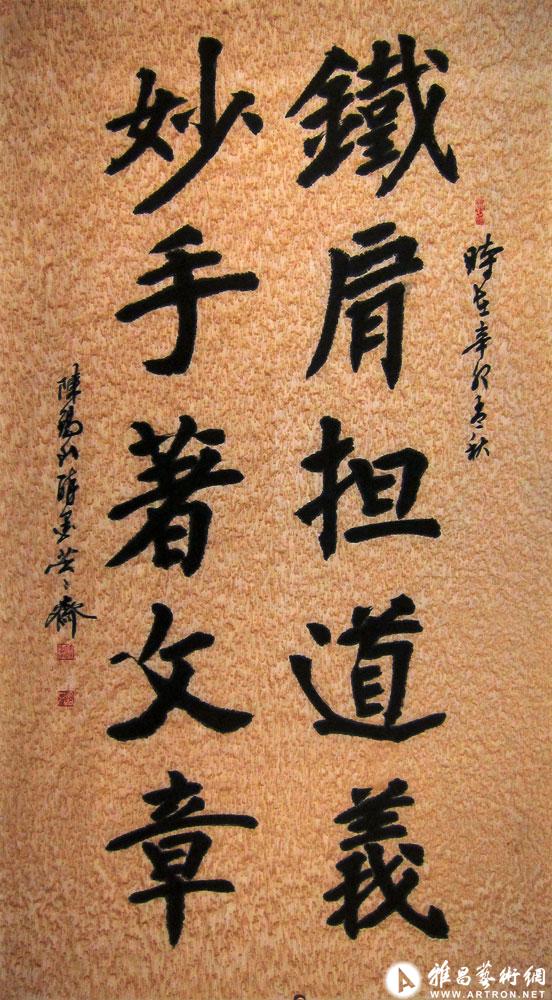 鐵肩担道義
妙手著文章
時在辛卯春秋
陳
雅昌藝術網
WWW.ARTRON.NET